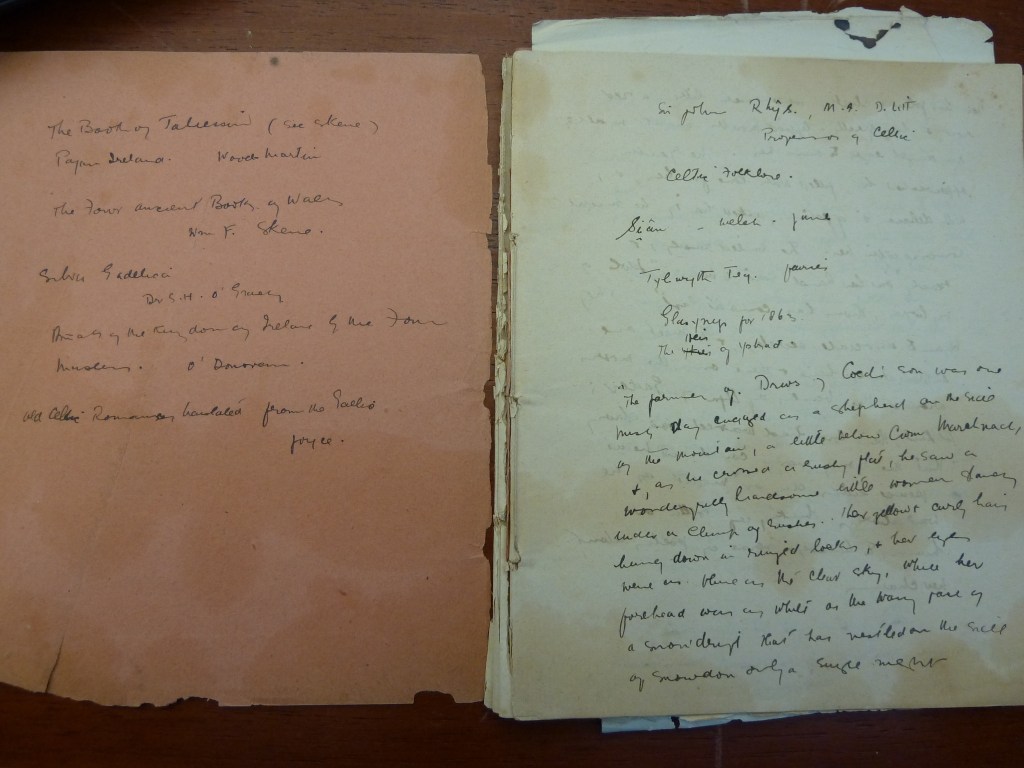 The Book of Taliessin (see Skene)
Pagan Ireland. Wood Martin
The Four ancient Books of Wales
Wm F. Skene.
Silva Gadelica
Dr S. H. O'Grady
Annals of the Kingdom of Ireland by the Four
Masters. O'Donovan.
Old Celtic Romances translated from the Gaelic
Joyce.
Sir John Rhŷs., M.A. D.LIT
Professor of Celtic
Celtic Folklore.
Siân - Welsh - Jane
Tylwyth Teg. fairies
for 1863
Heir
The of ystrad
The farmer of Drws y Coed's son was one
misty day engaged as a shepherd on the side
of the mountain, a little below Cwm Marchnad,
+, as he crossed a rushy flat, he saw a
wonderfully handsome little woman standing
under a clump of rushes. Her yellow & curly hair
hung down in ringed locks, & her eyes
were as blue as the clear sky, while her
forehead was as white as the wavy face of
a snowdrift that has nestled on the side
of Snowdon only a single night